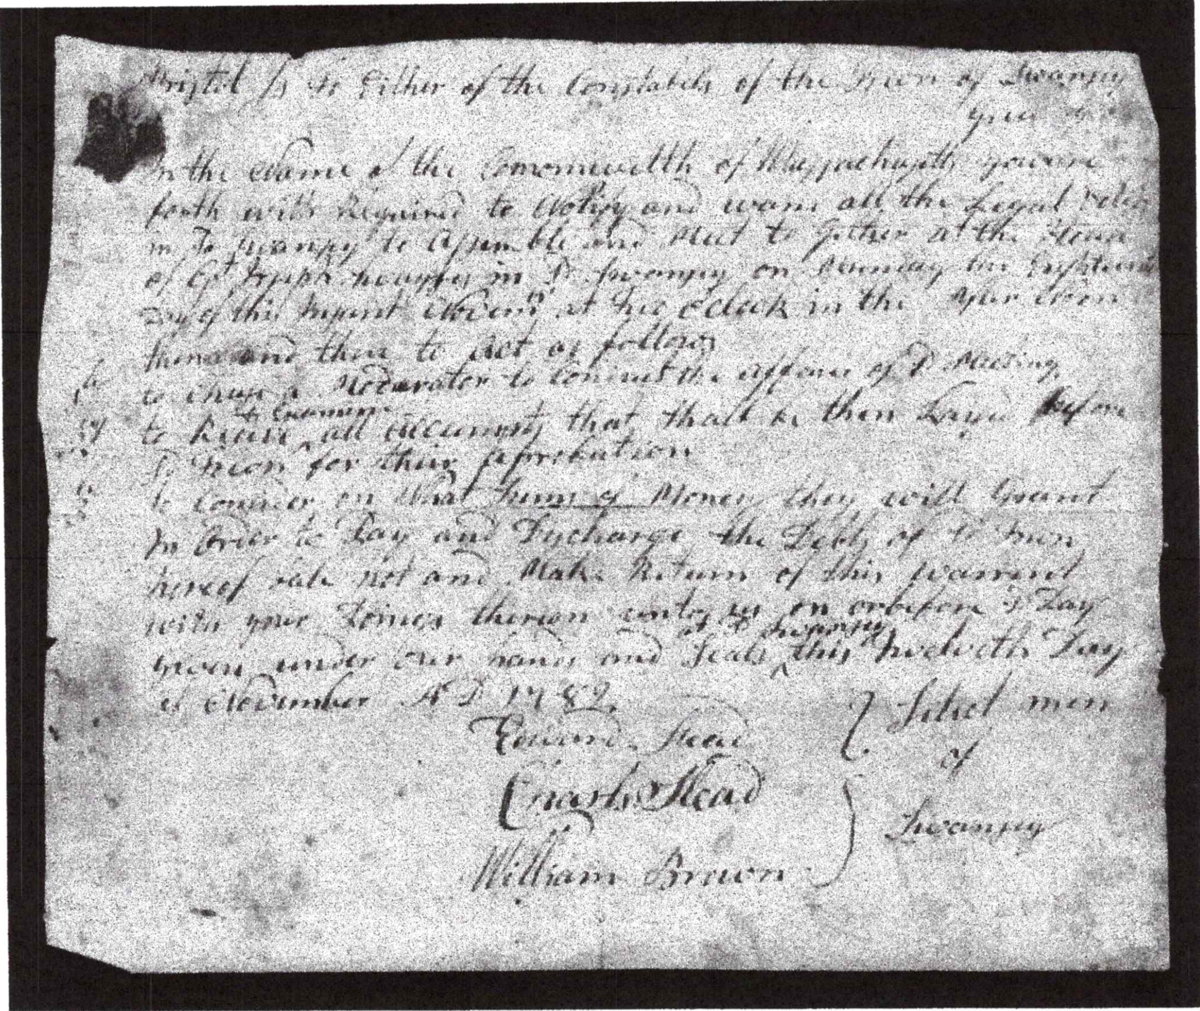 Bristol ss To Either of the Constabels of the Town of Swanzey
Greeting
In the Name of the Comonwealth of Massachusetts you are
forth with Required to Notify and warn all the Legal
in sd Swanzey to Assemble and Meet to Gether at the House
of Cpt in sd Swanzey on Munday the Eighteenth
Day of this Instant Novemr at two oClock in the After Noon
then and thier to Act as follows
1ly to Chuse a Moderator to Conduct the affairs of sd Meeting
2ly to Receive & Examine all accounts that shall be then Layd before
sd Town for their aprobation
3ly to Consider on What Sum of Money they will Grant
In Order to Pay and Discharge the Debts of sd Town
hereof fale not and Make Return of this warrent
with your Doings thereon unto us on or before sd Day
given under our hands and Seals in sd Swanzey this twelveth Day
of November A D 1782
Edward Slead
Slead
William Brown
Select men
of
Swanzey